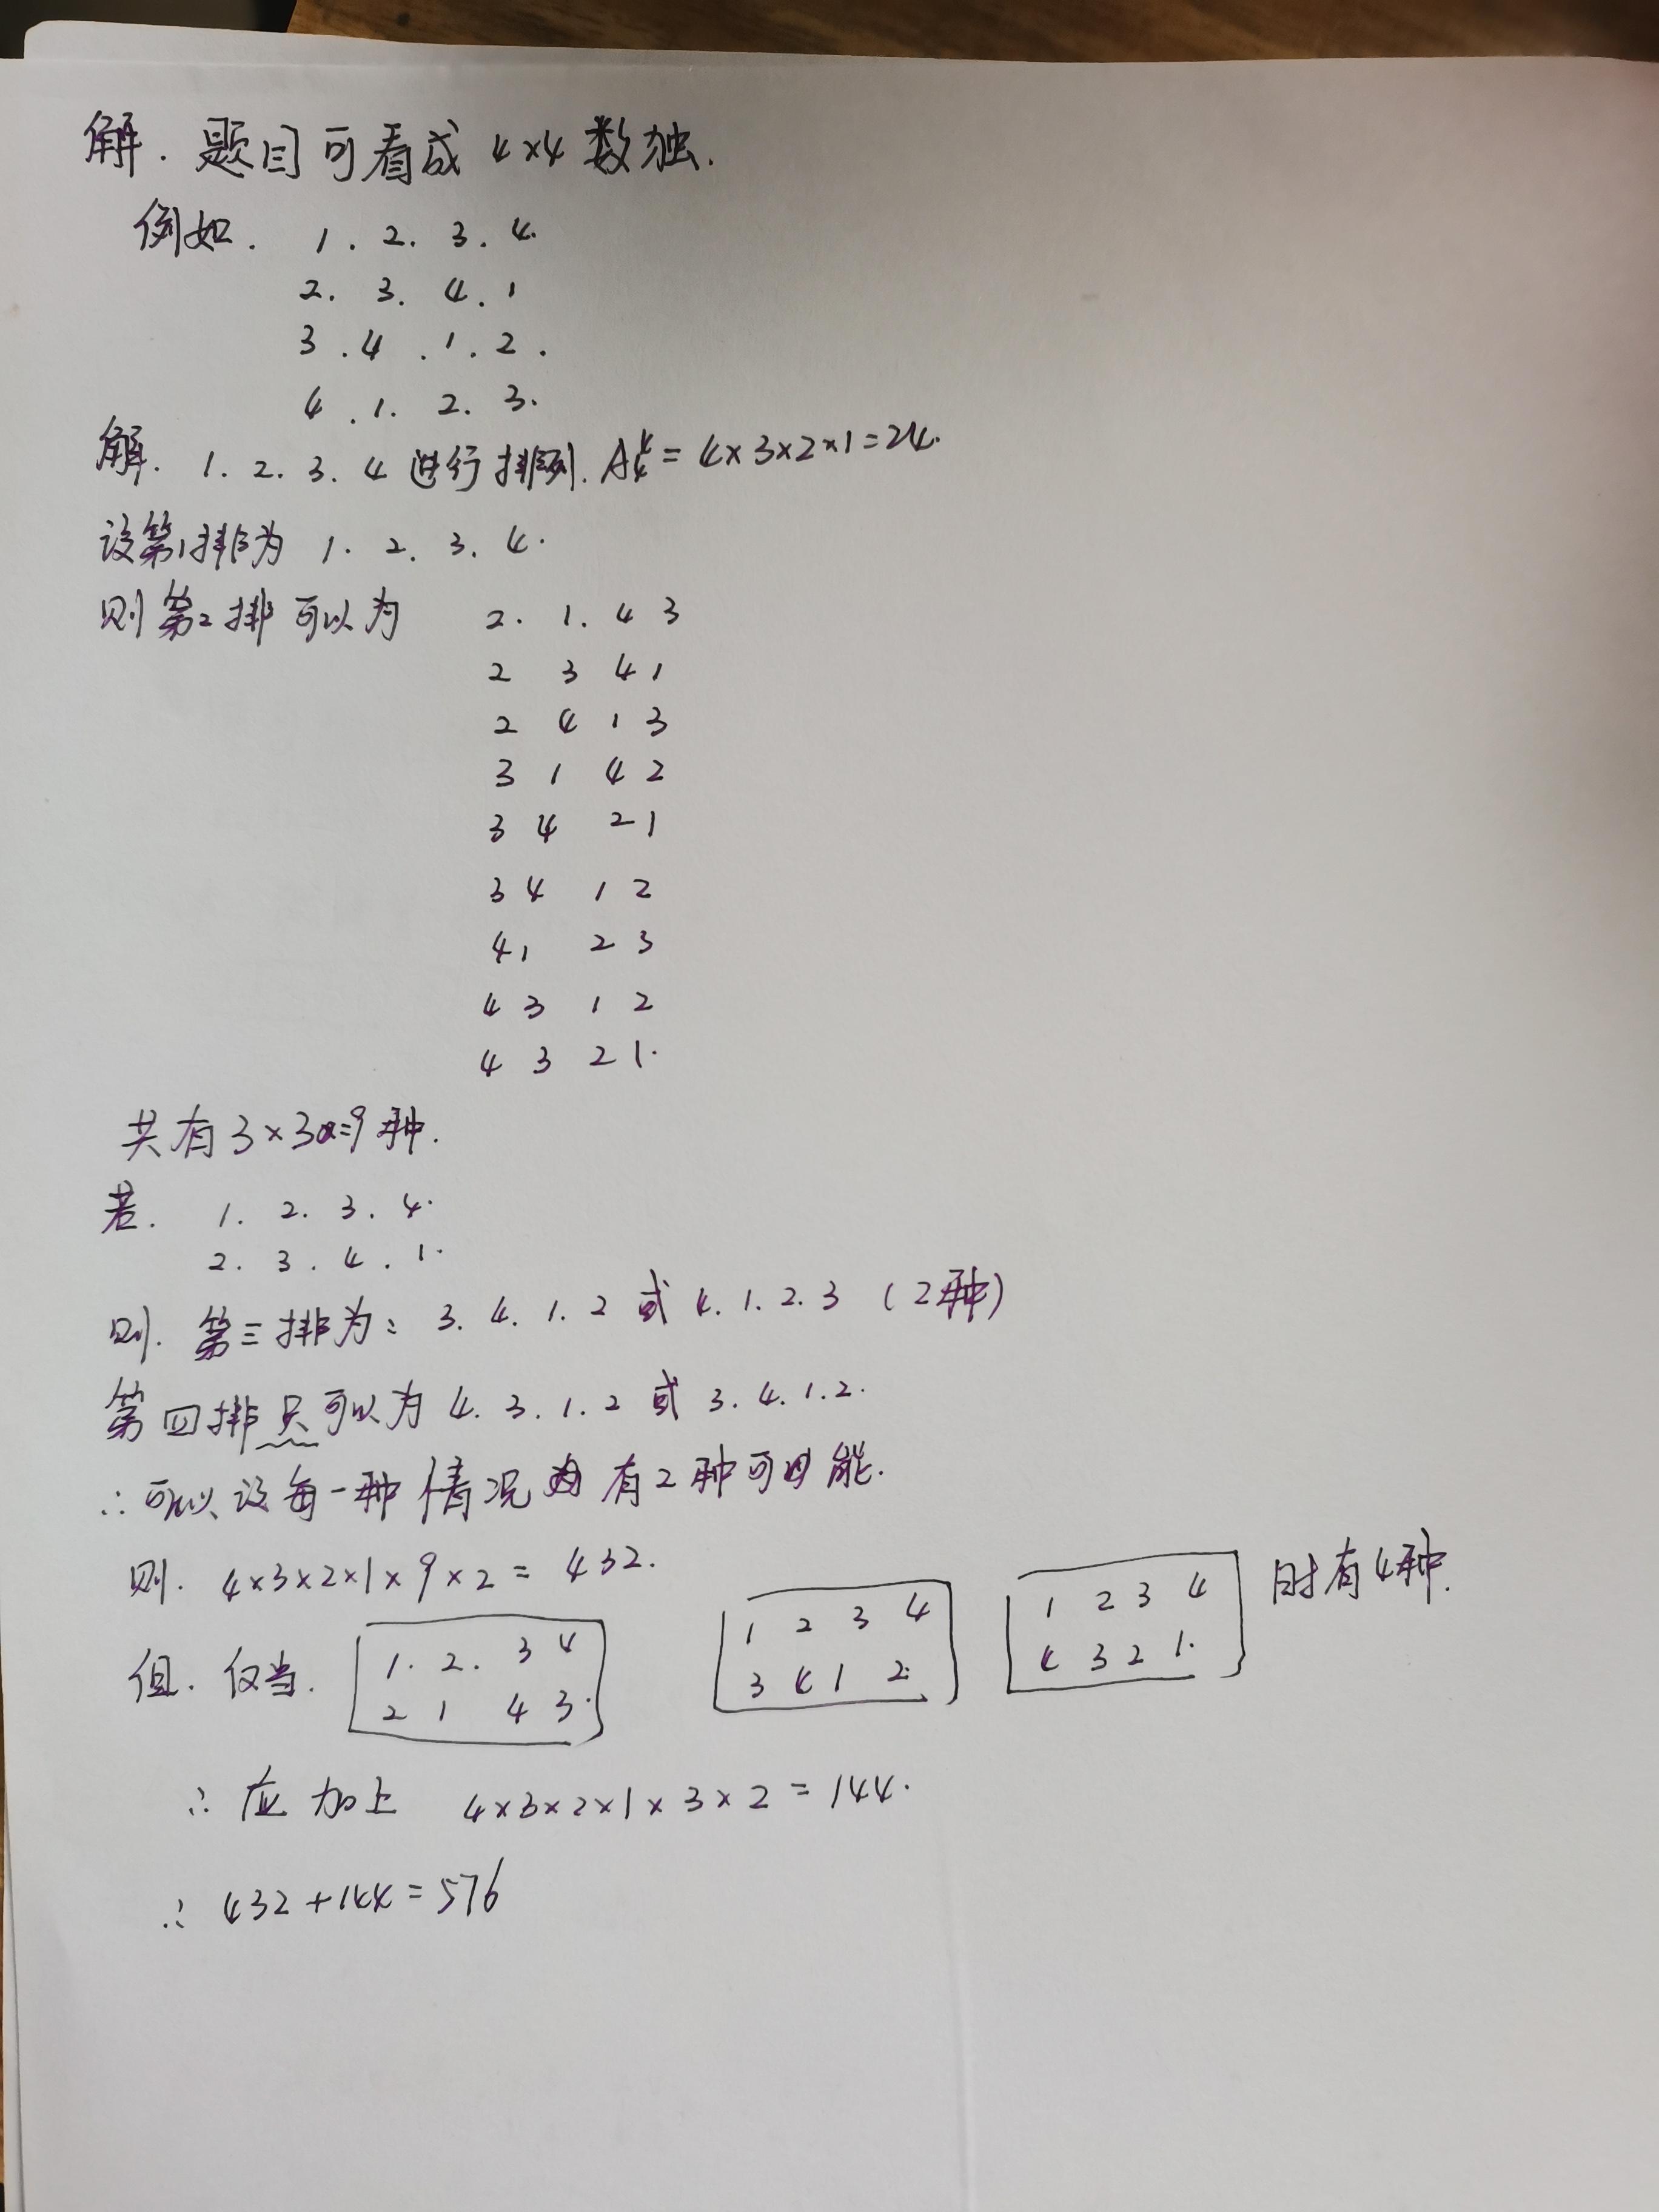 解. 题目可看成 4×4 数独.
例如. 1. 2. 3. 4.
2. 3. 4. 1
3. 4. 1. 2.
4. 1. 2. 3.
解. 1. 2. 3. 4 进行排列. A⁴₄ = 4×3×2×1=24.
设第1排为 1. 2. 3. 4.
则第2排可以为 2. 1. 4 3
2 3 4 1
2 4 1 3
3 1 4 2
3 4 2 1
3 4 1 2
4 1 2 3
4 3 1 2
4 3 2 1.
共有 3×3=9种.
若. 1. 2. 3. 4.
2. 3. 4. 1.
则. 第三排为: 3. 4. 1. 2 或 4. 1. 2. 3 (2种)
第四排只可以为 4. 3. 1. 2 或 3. 4. 1. 2.
∴可以设每一种情况有2种可能.
则. 4×3×2×1×9×2= 432.
但. 仅当. 1. 2. 3 4 1 2 3 4 1 2 3 4 时有4种.
2 1 4 3. 3 4 1 2. 4 3 2 1.
∴ 应加上 4×3×2×1×3×2=144.
∴ 432+144=576